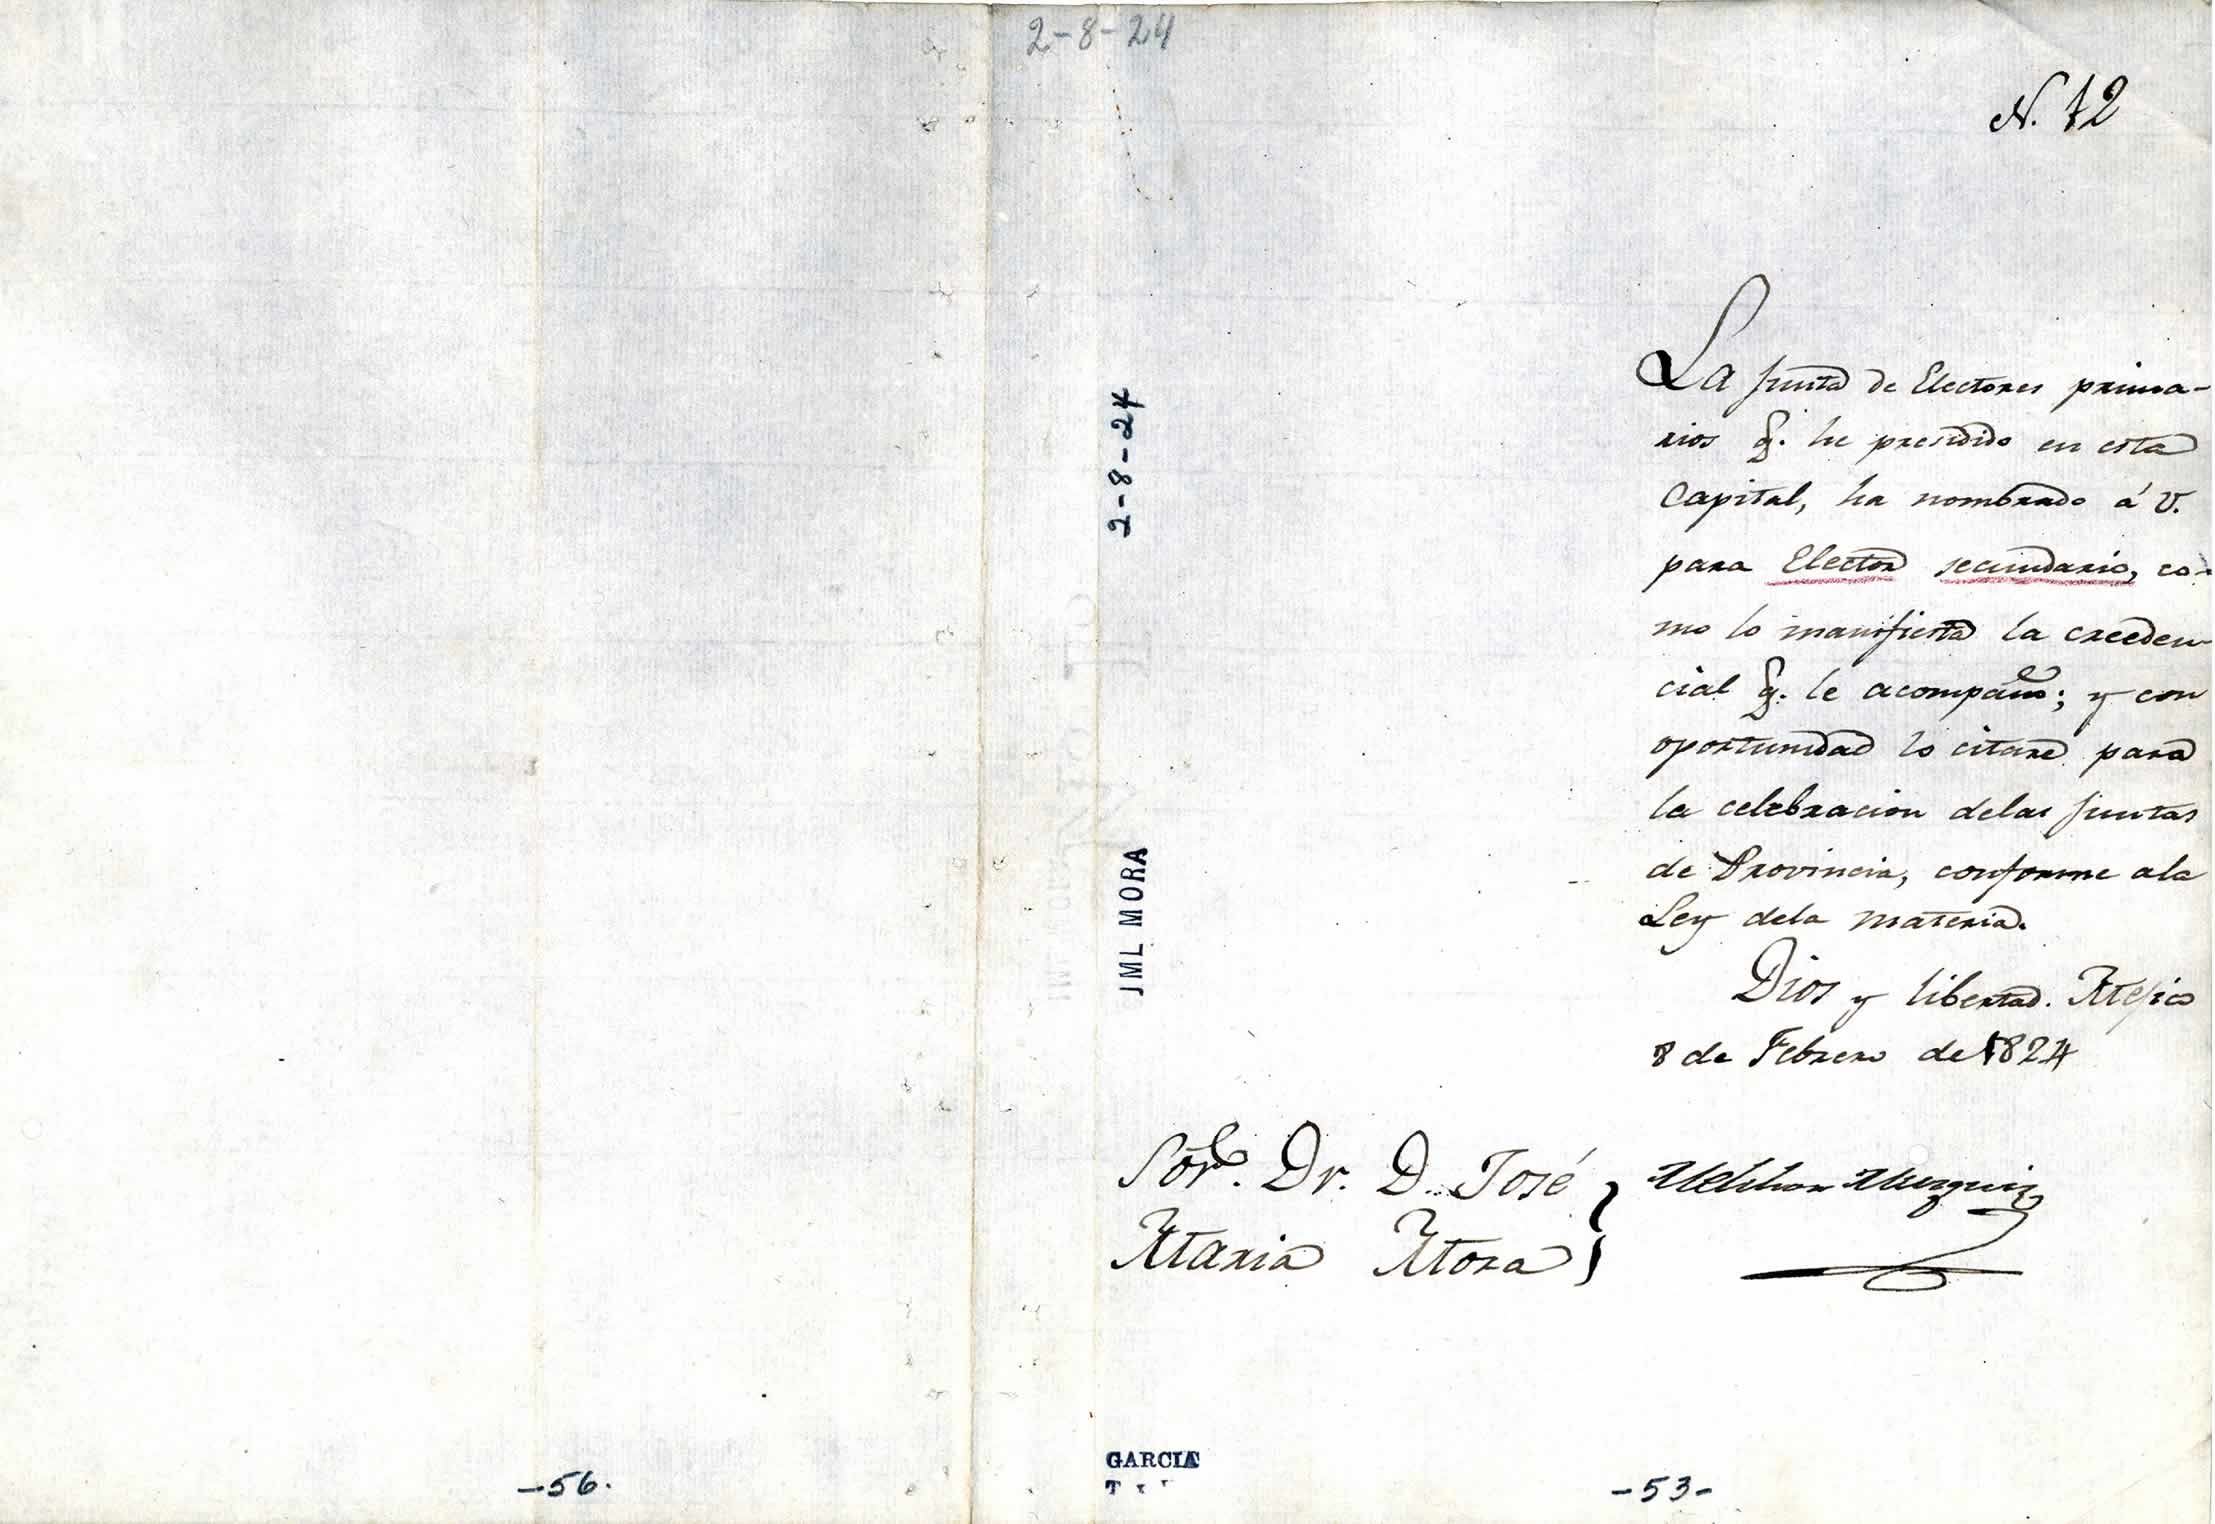 2-8-24
N. 12
La Junta de Electores prima-
rios q. he presidido en esta
Capital, ha nombrado á V.
para Elector secundario, co-
mo lo manifiesta la creeden-
cial q. le acompaño; y con
oportunidad lo citaré para
la celebracion delas Juntas
de Provincia, conforme ala
Ley dela materia.
Dios y libertad. Mejico
8 de Febrero de 1824
Melchor Muzquiz
Sor. Dr. D. José
Maria Mora
2-8-24
JML MORA
GARCIA
-56.
-53-